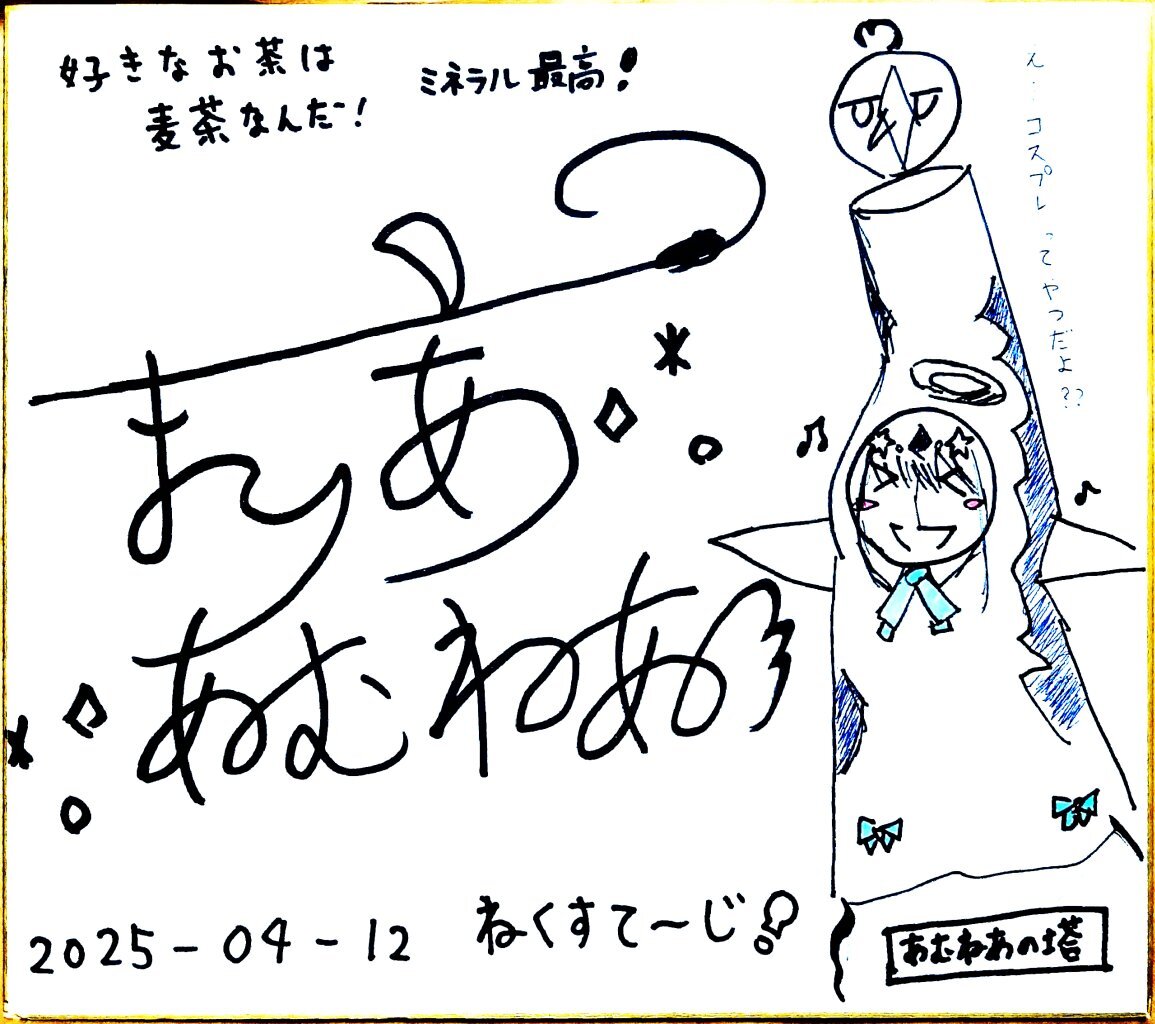 好きなお茶は
麦茶なんだー!
ミネラル最高!
え…コスプレってやつだよ??
まりあ
あむねあ
2025-04-12
ねくすて〜じ!?
あむねあの塔